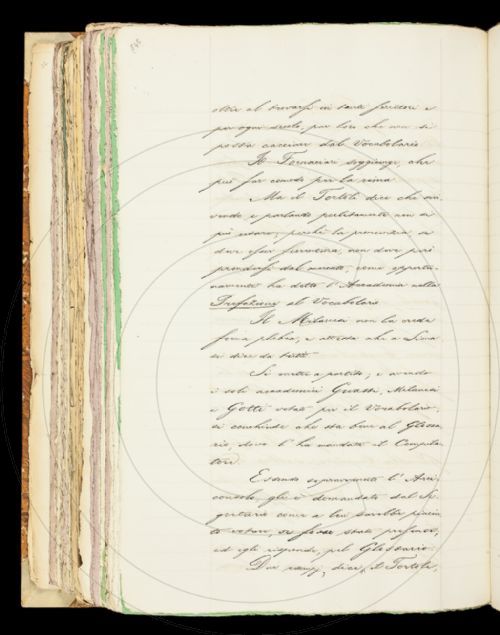 oltre al trovarsi in tanti scrittori e
per ogni secolo, par loro che non si
possa cacciar dal Vocabolario.
Il Fornaciari soggiunge, che
può far comodo per la rima.
Ma il Tortoli dice che scri-
vendo e parlando pulitamente non si
può usare; perchè la pronunzia, a
dover esser fiorentina, non deve poi
prendersi dal mercato, come opportu-
namente ha detto l'Accademia nella
Prefazione al Vocabolario.
Il Milanesi non la crede
forma plebea, e attesta che a Siena
si dice da tutti.
Si mette a partito; e avendo
i soli accademici Guasti, Milanesi
e Gotti votato per il Vocabolario,
si conchiude che sta bene al Glossa-
rio, dove l'ha mandato il Compila-
tore.
Essendo sopravvenuto l'Arci-
consolo, gli è domandato dal Se-
gretario come a lui sarebbe piaciu-
to votare, se fosse stato presente;
ed egli risponde, pel Glossario.
Due esempj, dice il Tortoli,